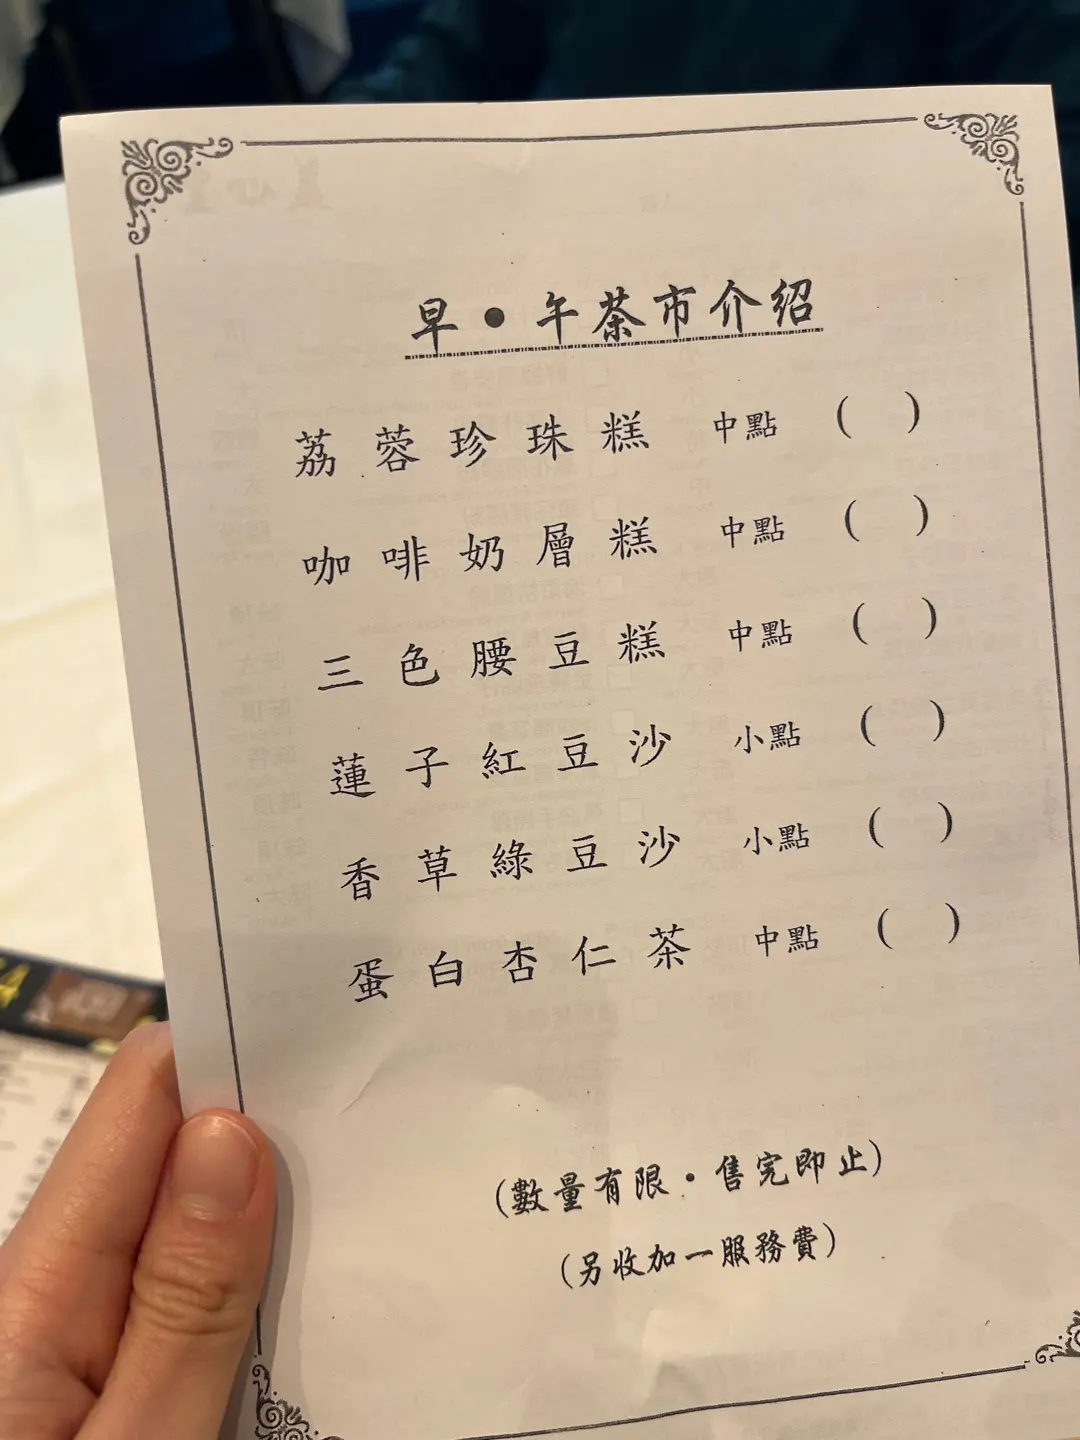 早•午茶市介紹
荔蓉珍珠糕 中點 ( )
咖啡奶層糕 中點 ( )
三色腰豆糕 中點 ( )
蓮子紅豆沙 小點 ( )
香草綠豆沙 小點 ( )
蛋白杏仁茶 中點 ( )
(數量有限•售完即止)
(另收加一服務費)